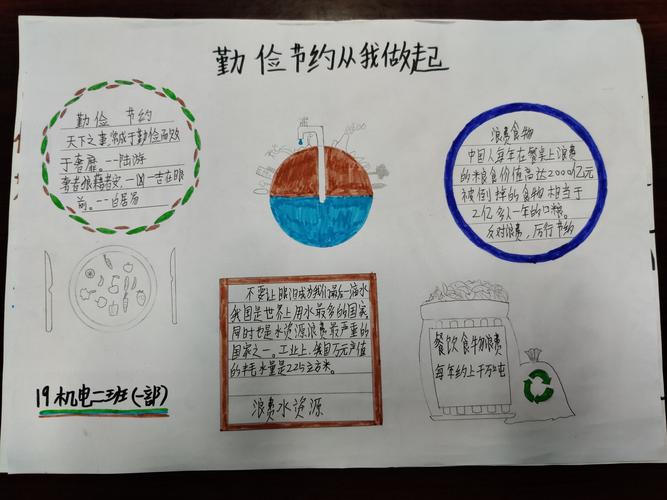 勤俭节约从我做起
勤俭 节约
天下之事,常成于勤俭而败
于奢靡。--陆游
奢者狼藉俭者安,一凶一吉在眼
前。--白居易
浪费食物
中国人每年在餐桌上浪费
的粮食价值高达2000亿元
被倒掉的食物相当于
2亿多人一年的口粮。
反对浪费,厉行节约
不要让眼泪成为我们最后一滴水
我国是世界上用水最多的国家,
同时也是水资源浪费最严重的
国家之一。工业上,我国万元产值
的耗水量是225立方米。
浪费水资源
餐饮食物浪费
每年约上千万吨
19机电二班(一部)